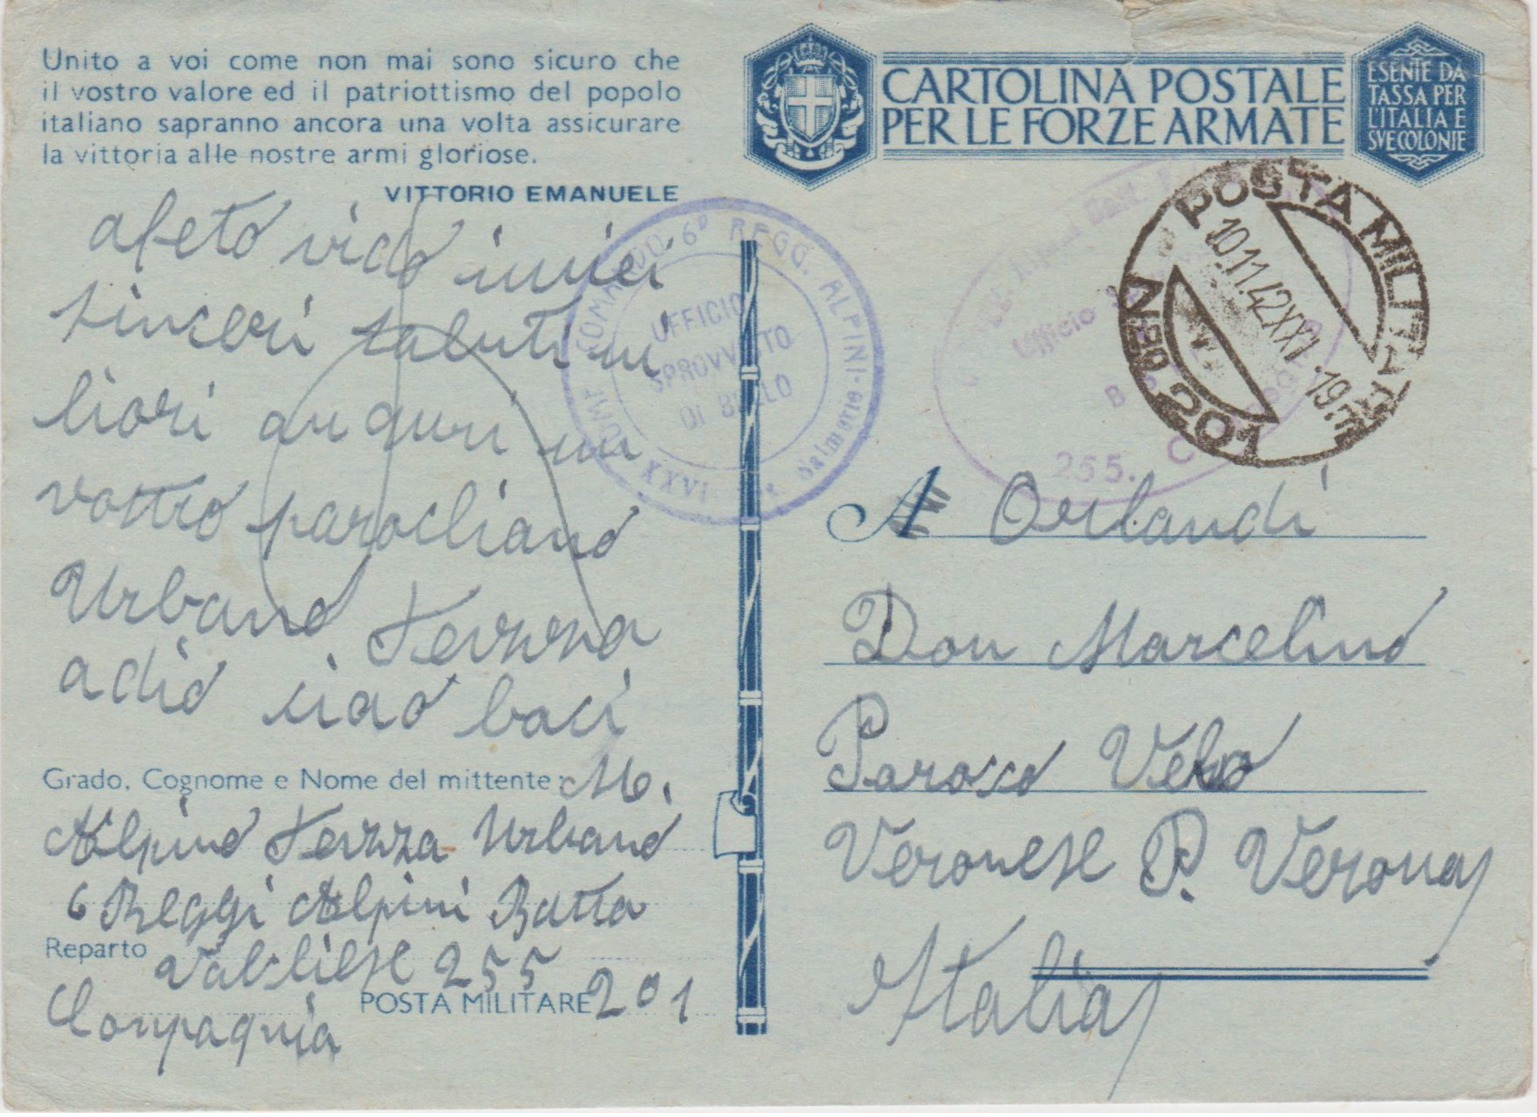 Unito a voi come non mai sono sicuro che
il vostro valore ed il patriottismo del popolo
italiano sapranno ancora una volta assicurare
la vittoria alle nostre armi gloriose.
VITTORIO EMANUELE
afeto vido i miei
sinceri saluti un
liori auguri un
vostro parochiano
Urbano Terzza
adio ciao baci
Grado, Cognome e Nome del mittente: M.
Alpino Terzza Urbano
6 Reggi Alpini Batta
Reparto Valchiese 255
Compagnia
POSTA MILITARE 201
CARTOLINA POSTALE
PER LE FORZE ARMATE
ESENTE DA
TASSA PER
L'ITALIA E
SVE COLONIE
POSTA MILITARE
10.11.42 XXI .19
N 201
COMANDO 6° REGG. ALPINI
UFFICIO
SPROVVISTO
DI BOLLO
XXVI salmerie
Ufficio
255. C
A Orlandi
Don Marcelino
Paroco Velo
Veronese P. Verona
Italia